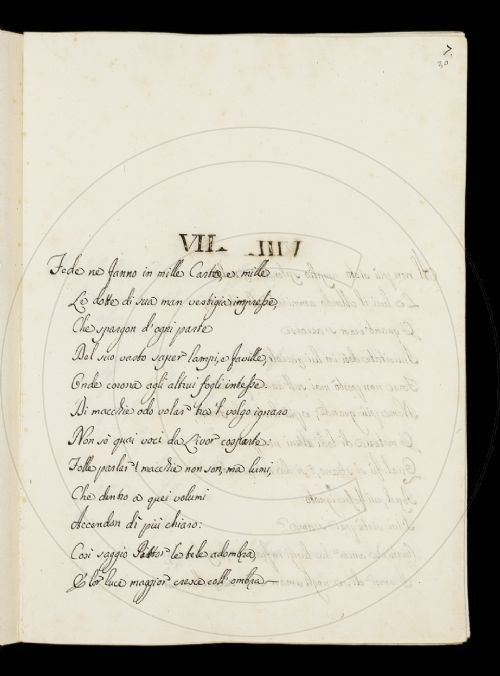 7.
30
VII.
Fede ne fanno in mille Carte, e mille
Le dotte di sua man vestigia impresse,
Che spargon d'ogni parte
Del suo vasto saper lampi, e faville,
Onde corona agli altrui fogli intesse.
Di macchie odo volar tra 'l volgo ignaro
Non sò quai voci da Livor cosparte:
Folle parlar! macchie non son, ma lumi,
Che dentro a quei volumi
Accendon dì più chiaro:
Così saggio Pittor le tele adombra,
E lor luce maggior cresce coll'ombra